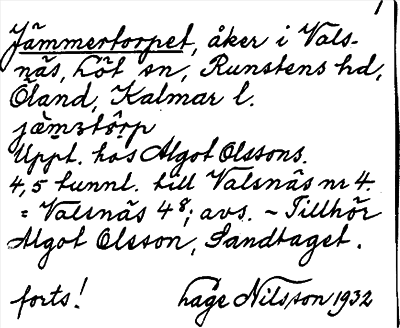 1
Jämmertorpet, åker i Vals-
näs, Löt sn, Runstens hd,
Öland, Kalmar l.
jæmₔtårp
Uppt. hos Algot Olssons.
4,5 tunnl. till Valsnäs nr 4.
= Valsnäs 4⁸; avs. – Tillhör
Algot Olsson, Sandtaget.
forts! Håge Nilsson 1932